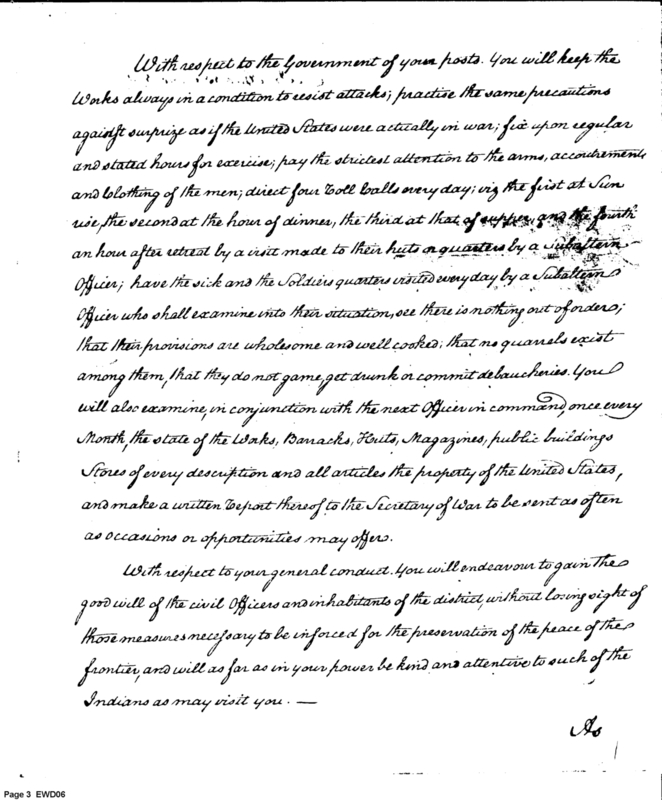 With respect to the Government of your posts. You will keep the
Works always in a condition to resist attacks; practise the same precautions
against surprize as if the United States were actually in war; fix upon regular
and stated hours for exercise; pay the strictest attention to the arms, accoutrements
and Clothing of the men; direct four Roll Calls every day; viz the first at Sun
rise, the second at the hour of dinner, the third at that of supper, and the fourth
an hour after retreat by a visit made to their huts or quarters by a Subaltern
Officer; have the sick and the Soldiers quarters visited every day by a Subaltern
Officer who shall examine into their situation, see there is nothing out of order;
that their provisions are wholesome and well cooked; that no quarrels exist
among them, that they do not game, get drunk or commit debaucheries. You
will also examine, in conjunction with the next Officer in command, once every
Month, the state of the Works, Barracks, Huts, Magazines, public buildings
Stores of every description and all articles the property of the United States,
and make a written Report thereof to the Secretary of War to be sent as often
as occasions or opportunities may offer.
With respect to your general conduct. You will endeavour to gain the
good will of the civil Officers and inhabitants of the district, without losing sight of
those measures necessary to be inforced for the preservation of the peace of the
frontier, and will as far as in your power be kind and attentive to such of the
Indians as may visit you. —
As
Page 3 EWD06